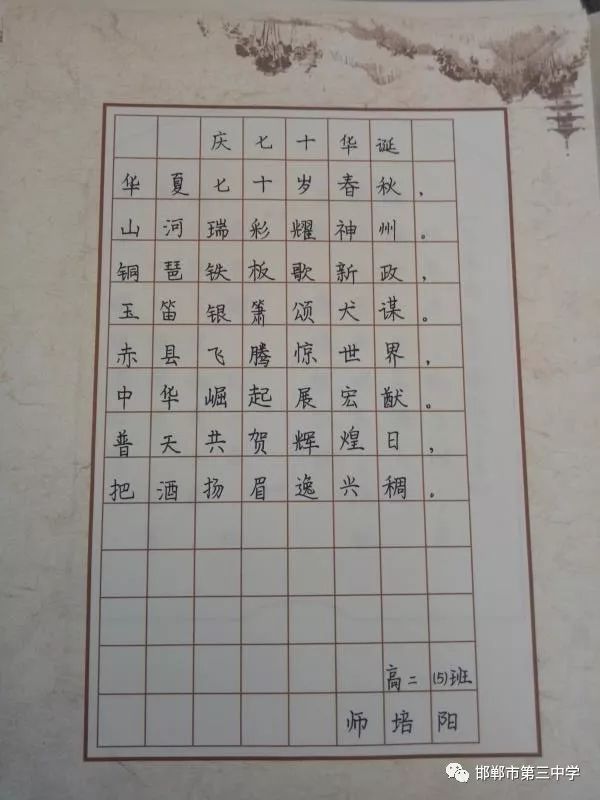 庆七十华诞
华夏七十岁春秋,
山河瑞彩耀神州。
铜琶铁板歌新政,
玉笛银箫颂犬谋。
赤县飞腾惊世界,
中华崛起展宏猷。
普天共贺辉煌日,
把酒扬眉逸兴稠。
高二(5)班
师培阳
邯郸市第三中学